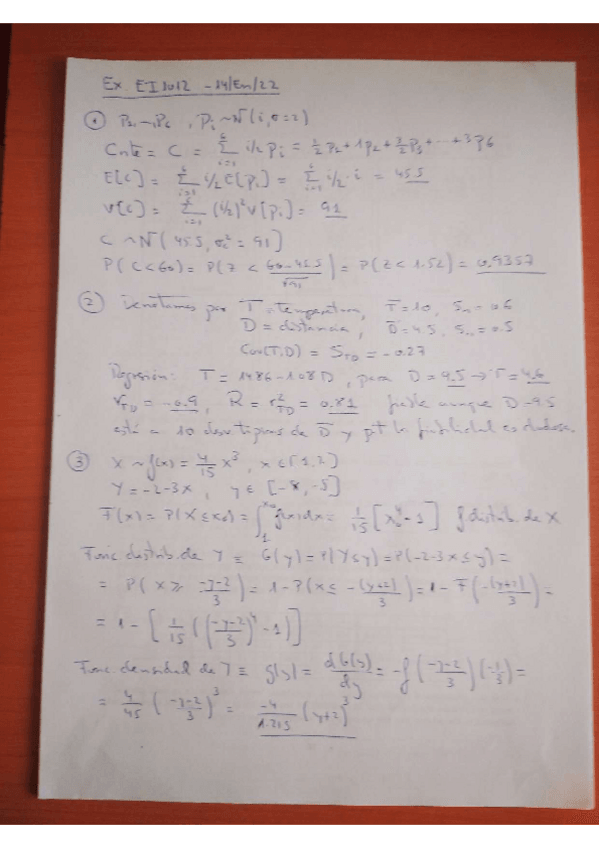 Ex. EI1012 - 14/En/22
① P₁ … P₆ , Pᵢ ~ N(i, σ=2)
Coste = C = Σ i/2 Pᵢ = 1/2 P₁ + 1 P₂ + 3/2 P₃ + … + 3 P₆
E[C] = Σ i/2 E[Pᵢ] = Σ i/2 · i = 45.5
V[C] = Σ (i/2)² V[Pᵢ] = 91
C ~ N(45.5, σ² = 91)
P(C<60) = P(Z < (60-45.5)/√91) = P(Z < 1.52) = 0.9357
② Denotamos por T = temperatura, T̄ = 10, Sₙ = 0.6
D = distancia, D̄ = 4.5, Sₙ = 0.5
Cov(T,D) = S_TD = -0.27
Regresión: T = 14.86 - 1.08 D, para D = 9.5 → T = 4.6
r_TD = -0.9, R = r²_TD = 0.81 aunque D=9.5
está a 10 desv. típicas de D̄ y la fiabilidad es dudosa.
③ X ~ f(x) = 4/15 x³, x ∈ [1,2]
Y = -2-3x, y ∈ [-8,-5]
F(x) = P(X ≤ x₀) = ∫₁^x₀ f(x)dx = 1/15 [x₀⁴ - 1] f. distrib. de X
Func. distrib. de Y ≡ G(y) = P(Y ≤ y) = P(-2-3x ≤ y) =
= P(X ≥ (-y-2)/3) = 1 - P(X ≤ -(y+2)/3) = 1 - F(-(y+2)/3) =
= 1 - [1/15 (((-y-2)/3)⁴ - 1)]
Func. densidad de Y ≡ g(y) = dG(y)/dy = -f((-y-2)/3)(-1/3) =
= 4/45 ((-y-2)/3)³ = -4/1.215 (y+2)³